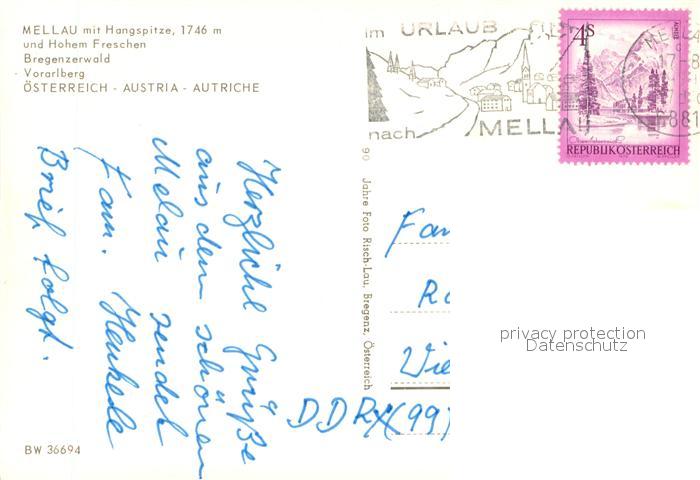 MELLAU mit Hangspitze, 1746 m
und Hohem Freschen
Bregenzerwald
Vorarlberg
ÖSTERREICH - AUSTRIA - AUTRICHE
im URLAUB
nach MELLAU
4S
REPUBLIK ÖSTERREICH
Herzliche Grüße
aus dem schönen
Melau sendet
Fam. Henkele
Brief folgt.
90 Jahre Foto Risch-Lau, Bregenz, Österreich
Fam
Wie
DDR X(99)
privacy protection
Datenschutz
BW 36694